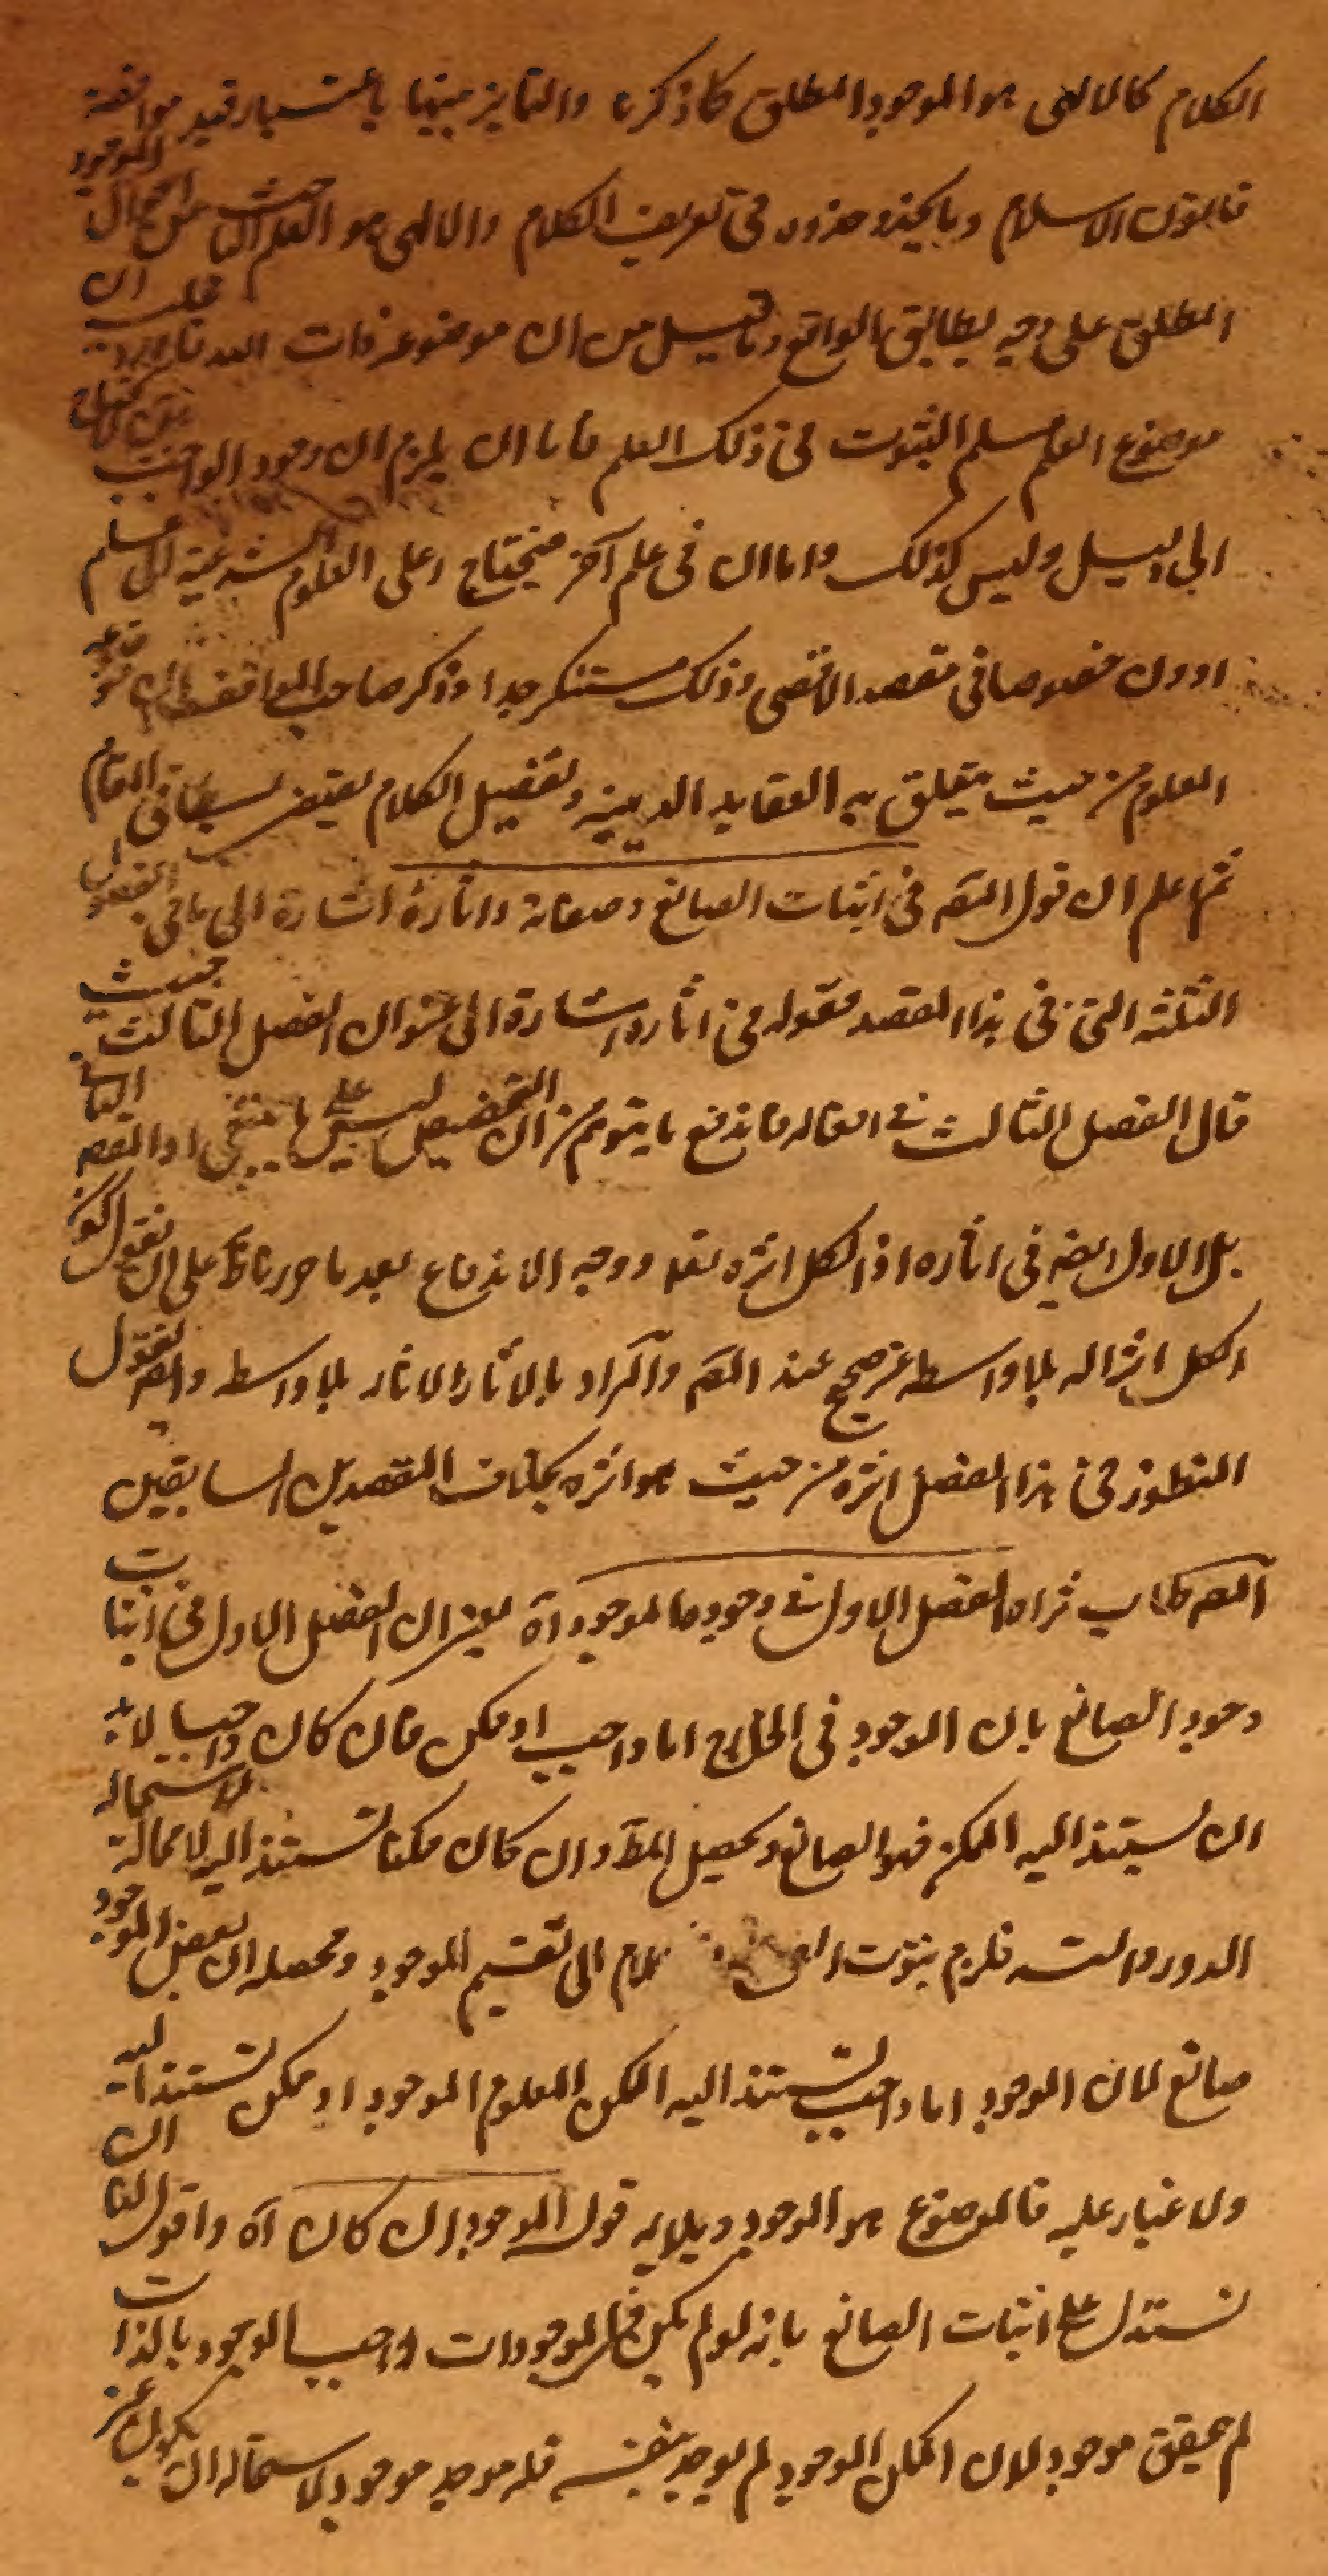 الكلام كالالهى هو الموجود المطلق كما ذكرنا والتمايز بينهما باعتبار قيد موافقة
قانون الاسلام وما يحذو حذوه فى تعريف الكلام والالهى هو العلم الباحث عن احوال الموجود
المطلق على وجه يطابق الواقع وما قيل من ان موضوعه ذات الله تعالى قلب ان
موضوع العلم مسلم الثبوت فى ذلك العلم فاما ان يلزم ان وجود الواجب
الى دليل وليس كذلك واما ان فى علم آخر فيحتاج اعلى العلوم الشرعية الى علم
ادون خصوصا فى مقصد الاقصى وذلك مستنكر جدا وذكر صاحب المواقف ان موضوعه
المعلوم من حيث يتعلق به العقايد الدينية وتفصيل الكلام يقتضى بسطا فى المقام
ثم اعلم ان قول المص فى اثبات الصانع وصفاته واثاره اشارة الى ما فى الفصول
الثلثة التى فى هذا المقصد فقوله فى اثاره اشارة الى عنوان الفصل الثالث حيث
قال الفصل الثالث فى افعاله فاندفع ما يتوهم من ان التخصيص ليس على ما ينبغى اذ المقصد الثانى
بل الاول ايضا فى اثاره اذ الكل اثره تعالى ووجه الاندفاع بعد ما حررنا لك على ان نقول كون
الكل اثرا له بلا واسطه غير صحيح عند المص والمراد بالاثار الاثار بلا واسطه وايضا نقول
المنظور فى هذا الفصل اثره من حيث هو اثره بخلاف المقصدين السابقين
المص طاب ثراه الفصل الاول فى وجوده الموجود آه يعنى ان الفصل الاول فى اثبات
وجود الصانع بان الموجود فى الخارج اما واجب او ممكن فان كان واجبا لا بد
ان يستند اليه الممكن فهو الصانع ويحصل المط وان كان ممكنا تستند اليه لا محالة لاستحالة
الدور والتسلسل فلزم ثبوت الى تقسيم الموجود ومحصله ان بعض الموجود
صانع لان الموجود اما واجب يستند اليه الممكن المعلوم الموجود او ممكن تستند اليه
ولا غبار عليه فالموضوع هو الموجود ويلايمه قول الموجود ان كان آه واقول لنا ان
نستدل على اثبات الصانع بانه لو لم يكن فى الموجودات واجب الوجود بالذات
لم يتحقق موجود لان الممكن الموجود لم يوجد بنفسه فله موجد موجود لاستحالة ان يكون غير